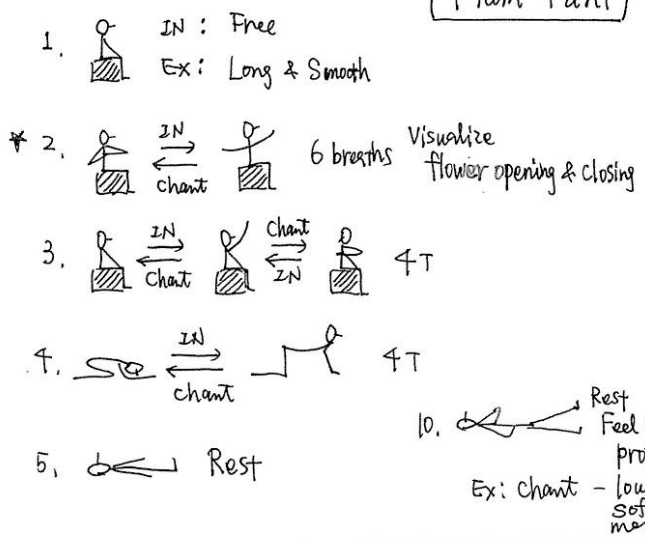 1. IN : Free
Ex : Long & Smooth
* 2. IN
chant
6 breaths Visualize
flower opening & closing
3. IN
Chant
Chant
IN
4T
4. IN
chant
4T
5. Rest
10. Rest
Feel
Ex : chant -